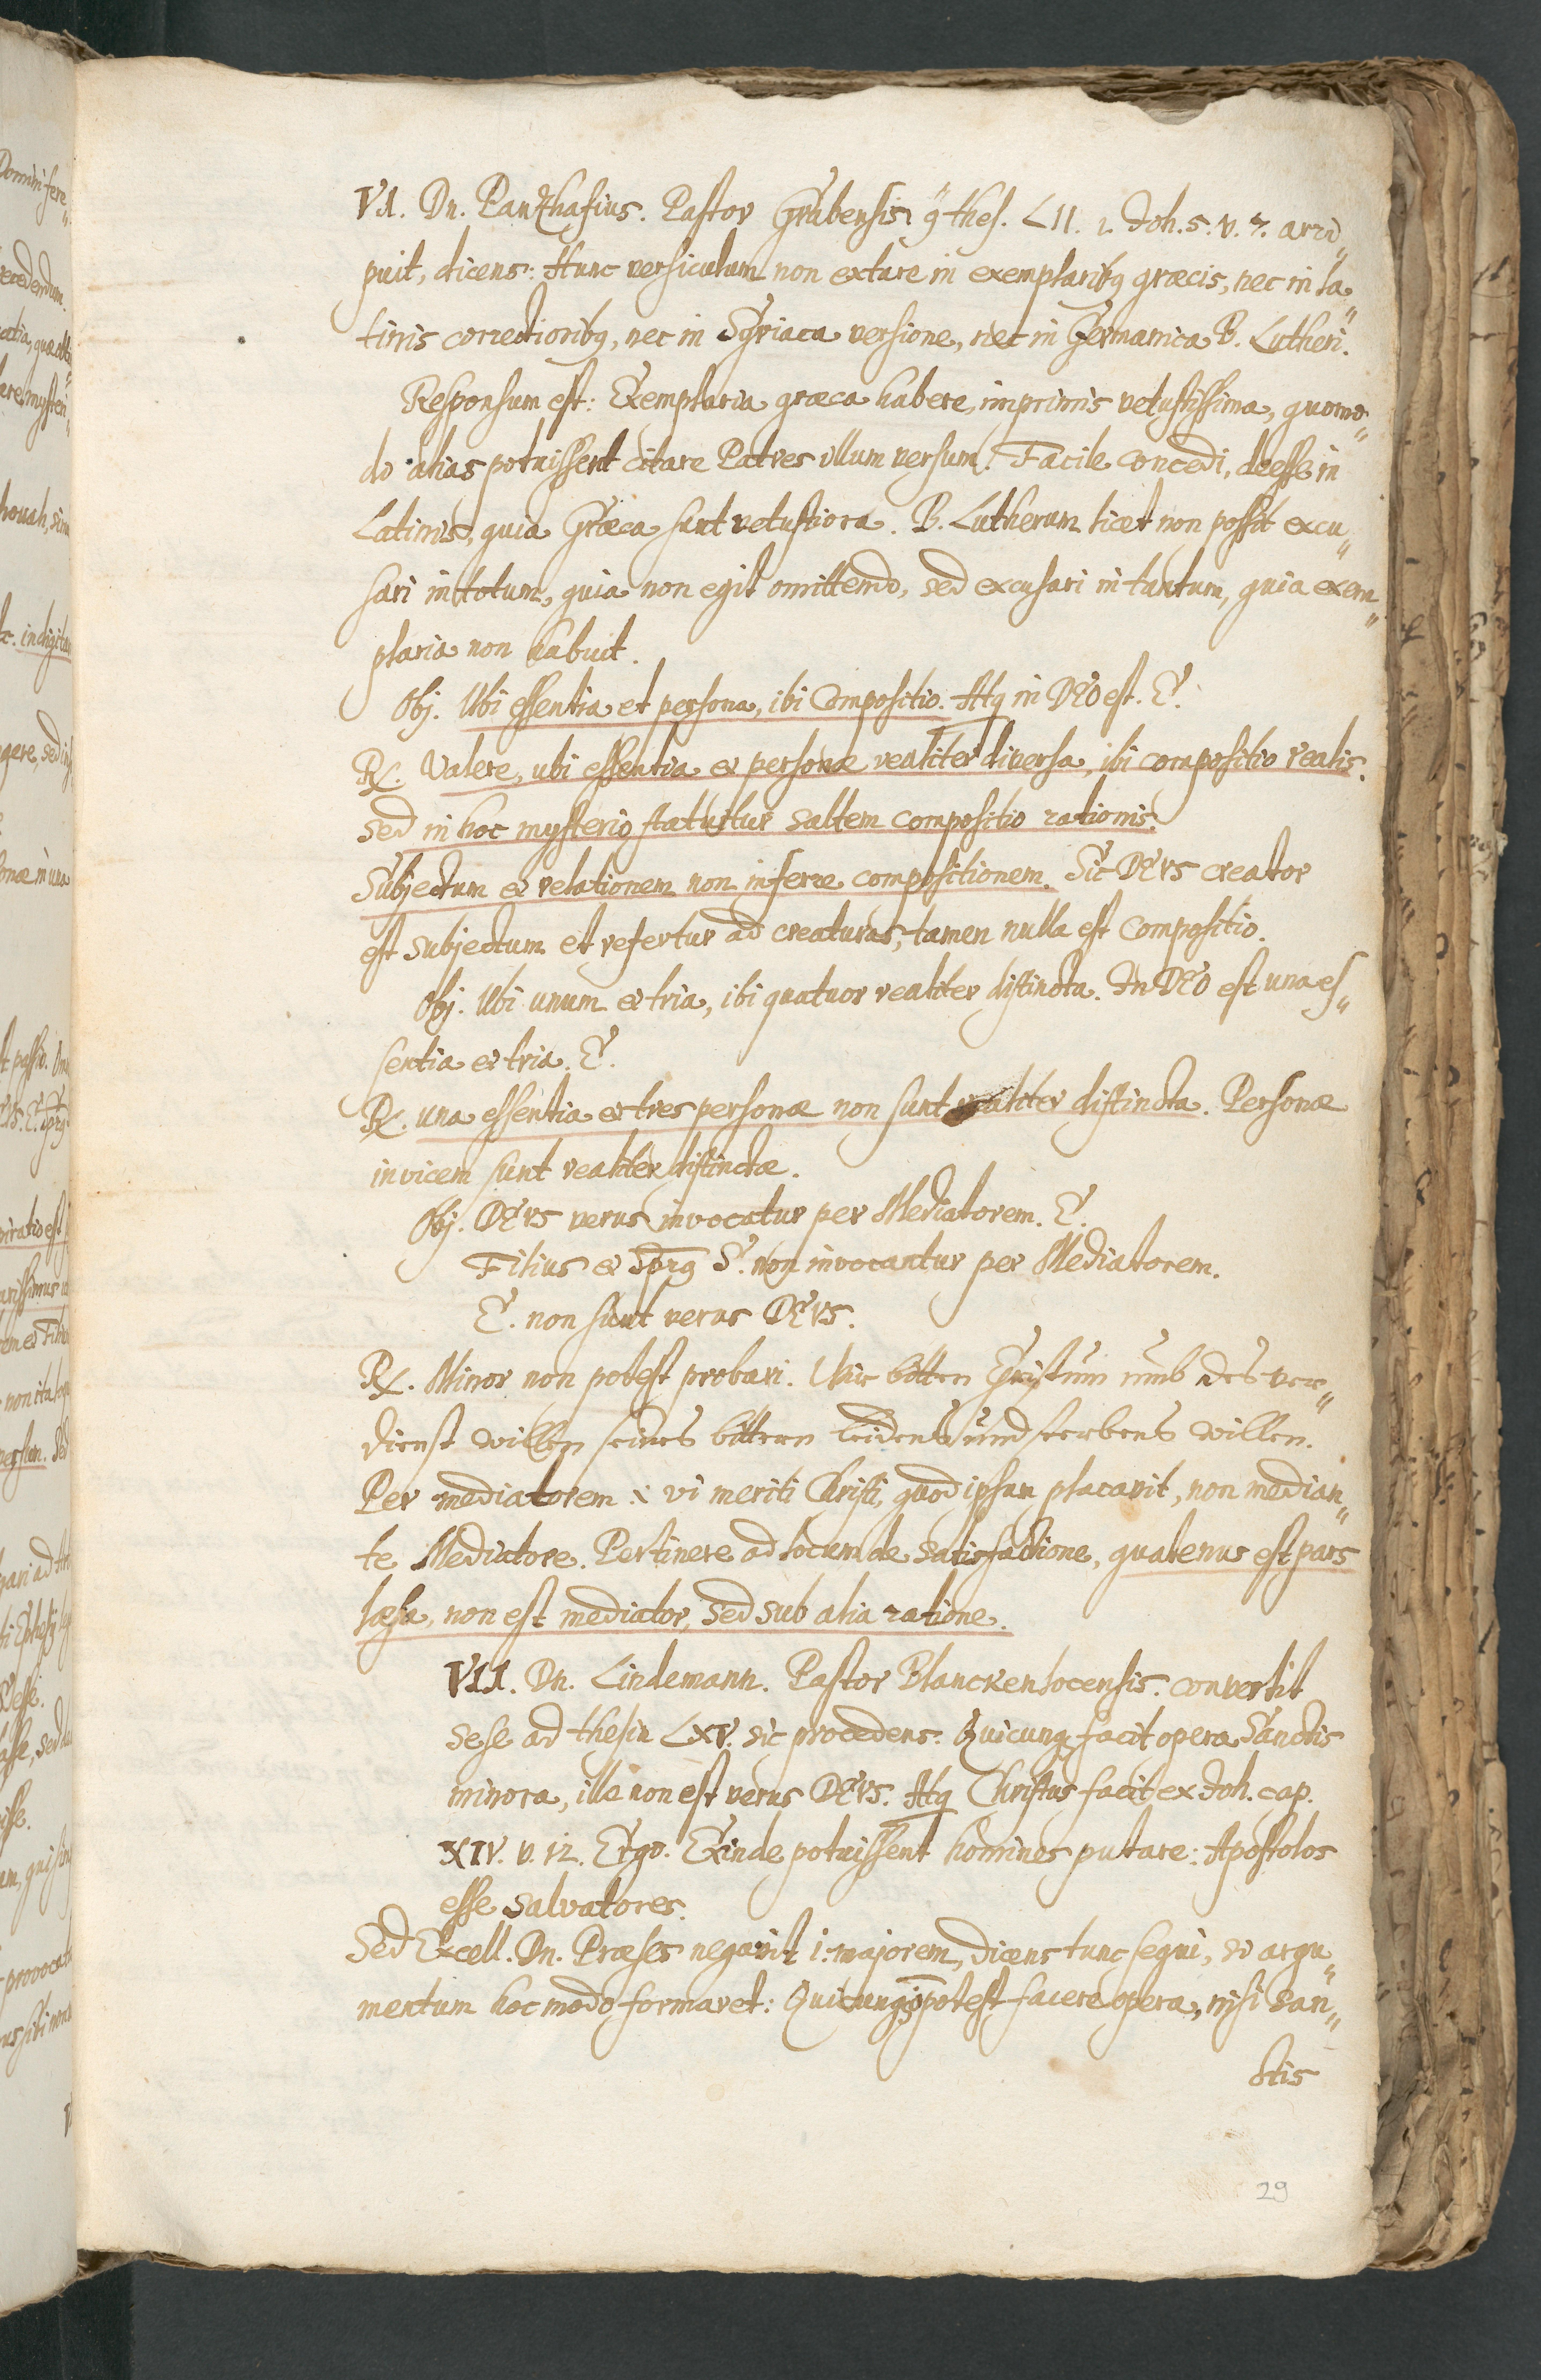 VI. Dn. Panzhasius. Pastor Grubensis, thes. LII. 1. Joh. 5. v. 7. arri„
puit, dicens: Hunc versiculum non extare in exemplaribq græcis, nec in la„
tinis correctioribq, nec in Syriaca versione, nec in Germanica B. Lutheri.
Responsum est: Exemplaria græca habere, imprimis vetustissima, quomo„
do alias potuissent citare Patres illum versum. Facile concedi, deesse in
Latinis, quia Græca sunt vetustiora. B. Lutherum licet non possit excu„
sari in totum, quia non egit omittendo, sed excusari in tantum, quia exem„
plaria non habuit.
Obj. Ubi essentia et persona, ibi Compositio. Atq in DEO est. E.
R. Valere, ubi essentia et personæ realiter diversa, ibi compositio realis.
Sed in hoc mysterio statuitur saltem compositio rationis.
Subjectum et relationem non inferre compositionem. Sic DEVS creator
est subjectum et refertur ad creaturas, tamen nulla est Compositio.
Obj. Ubi unum et tria, ibi quatuor realiter distincta. In DEO est una es„
sentia et tria. E.
R. una essentia et tres personæ non sunt realiter distincta. Personæ
invicem sunt realiter distinctæ.
Obj. DEVS verus invocatur per Mediatorem. E.
Filius et Sprq S. non invocantur per Mediatorem.
E. non sunt verus DEVS.
R. Minor non potest probari. Wir bitten Christum umb des ver„
dienst willen seines bittern Leidens und sterbens willen.
Per mediatorem :i vi meriti Christi, quod ipsum placavit, non median„
te Mediatore. Pertinere ad locum de Satisfactione, quatenus est pars
læsa, non est mediator, sed sub alia ratione.
VII. Dn. Lindemann. Pastor Blanckensocensis. convertit
sese ad thesin LXV. sic procedens: Quicunq facit opera Sanctis
minora, ille non est verus DEVS. Atq Christus facit ex Joh. cap.
XIV. v. 12. Ergo. Exinde potuissent homines putare: Apostolos
esse salvatores.
Sed Excell. Dn. Præses negavit i. majorem, dicens tunc sequi, si argu„
mentum hoc modo formaret: Quicunq potest facere opera, nisi San„
ctis
29